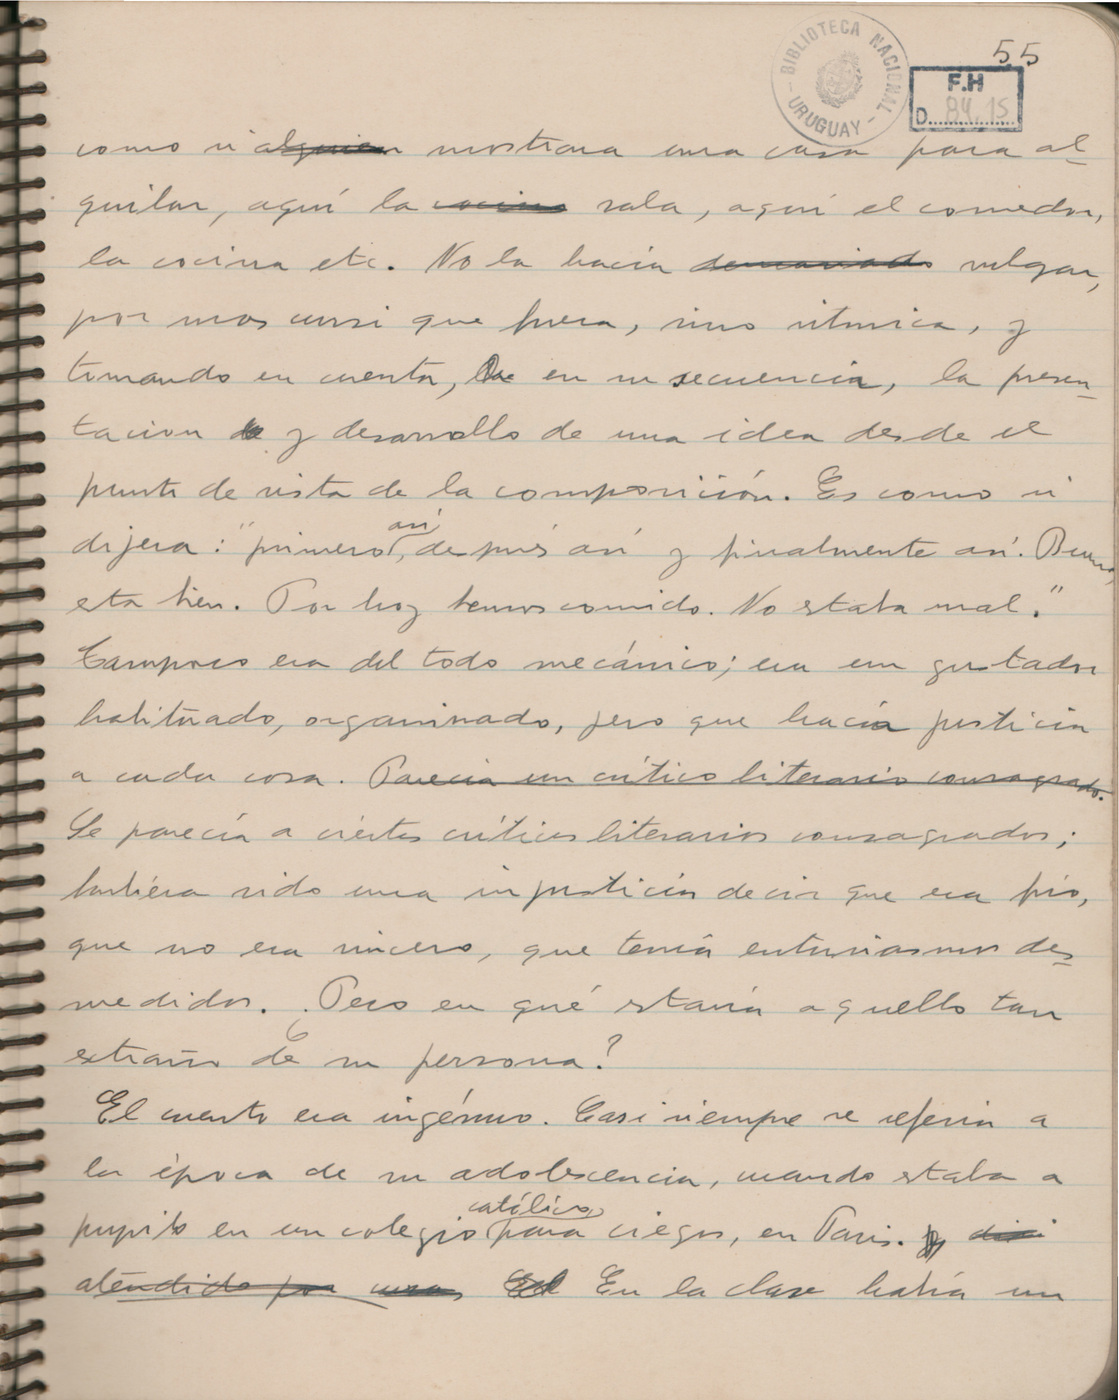 BIBLIOTECA NACIONAL
- URUGUAY -
55
F.H
D. 84.15
como si alguien mostrara una casa para al-
quilar, aquí la cocina sala, aquí el comedor,
la cocina etc. No la hacía demasiado vulgar,
por mas cursi que fuera, sino rítmica, y
tomando en cuenta, en su secuencia, la presen-
tacion de y desarrollo de una idea desde el
punto de vista de la composición. Es como si
dijera: "primero así, después así y finalmente así. Bueno,
esta bien. Por hoy hemos comido. No estaba mal."
Tampoco era del todo mecánico; era un gustador
habituado, organizado, pero que hacía justicia
a cada cosa. Parecia un crítico literario consagrado.
Se parecía a ciertos críticos literarios consagrados;
hubiera sido una injusticia decir que era frío,
que no era sincero, que tenía entusiasmos des-
medidos. Pero en qué estaría aquello tan
extraño de su persona?
El cuento era ingénuo. Casi siempre se refería a
la época de su adolescencia, cuando estaba a
pupilo en un colegio católico para ciegos, en Paris. y
atendido por unas En la clase había un